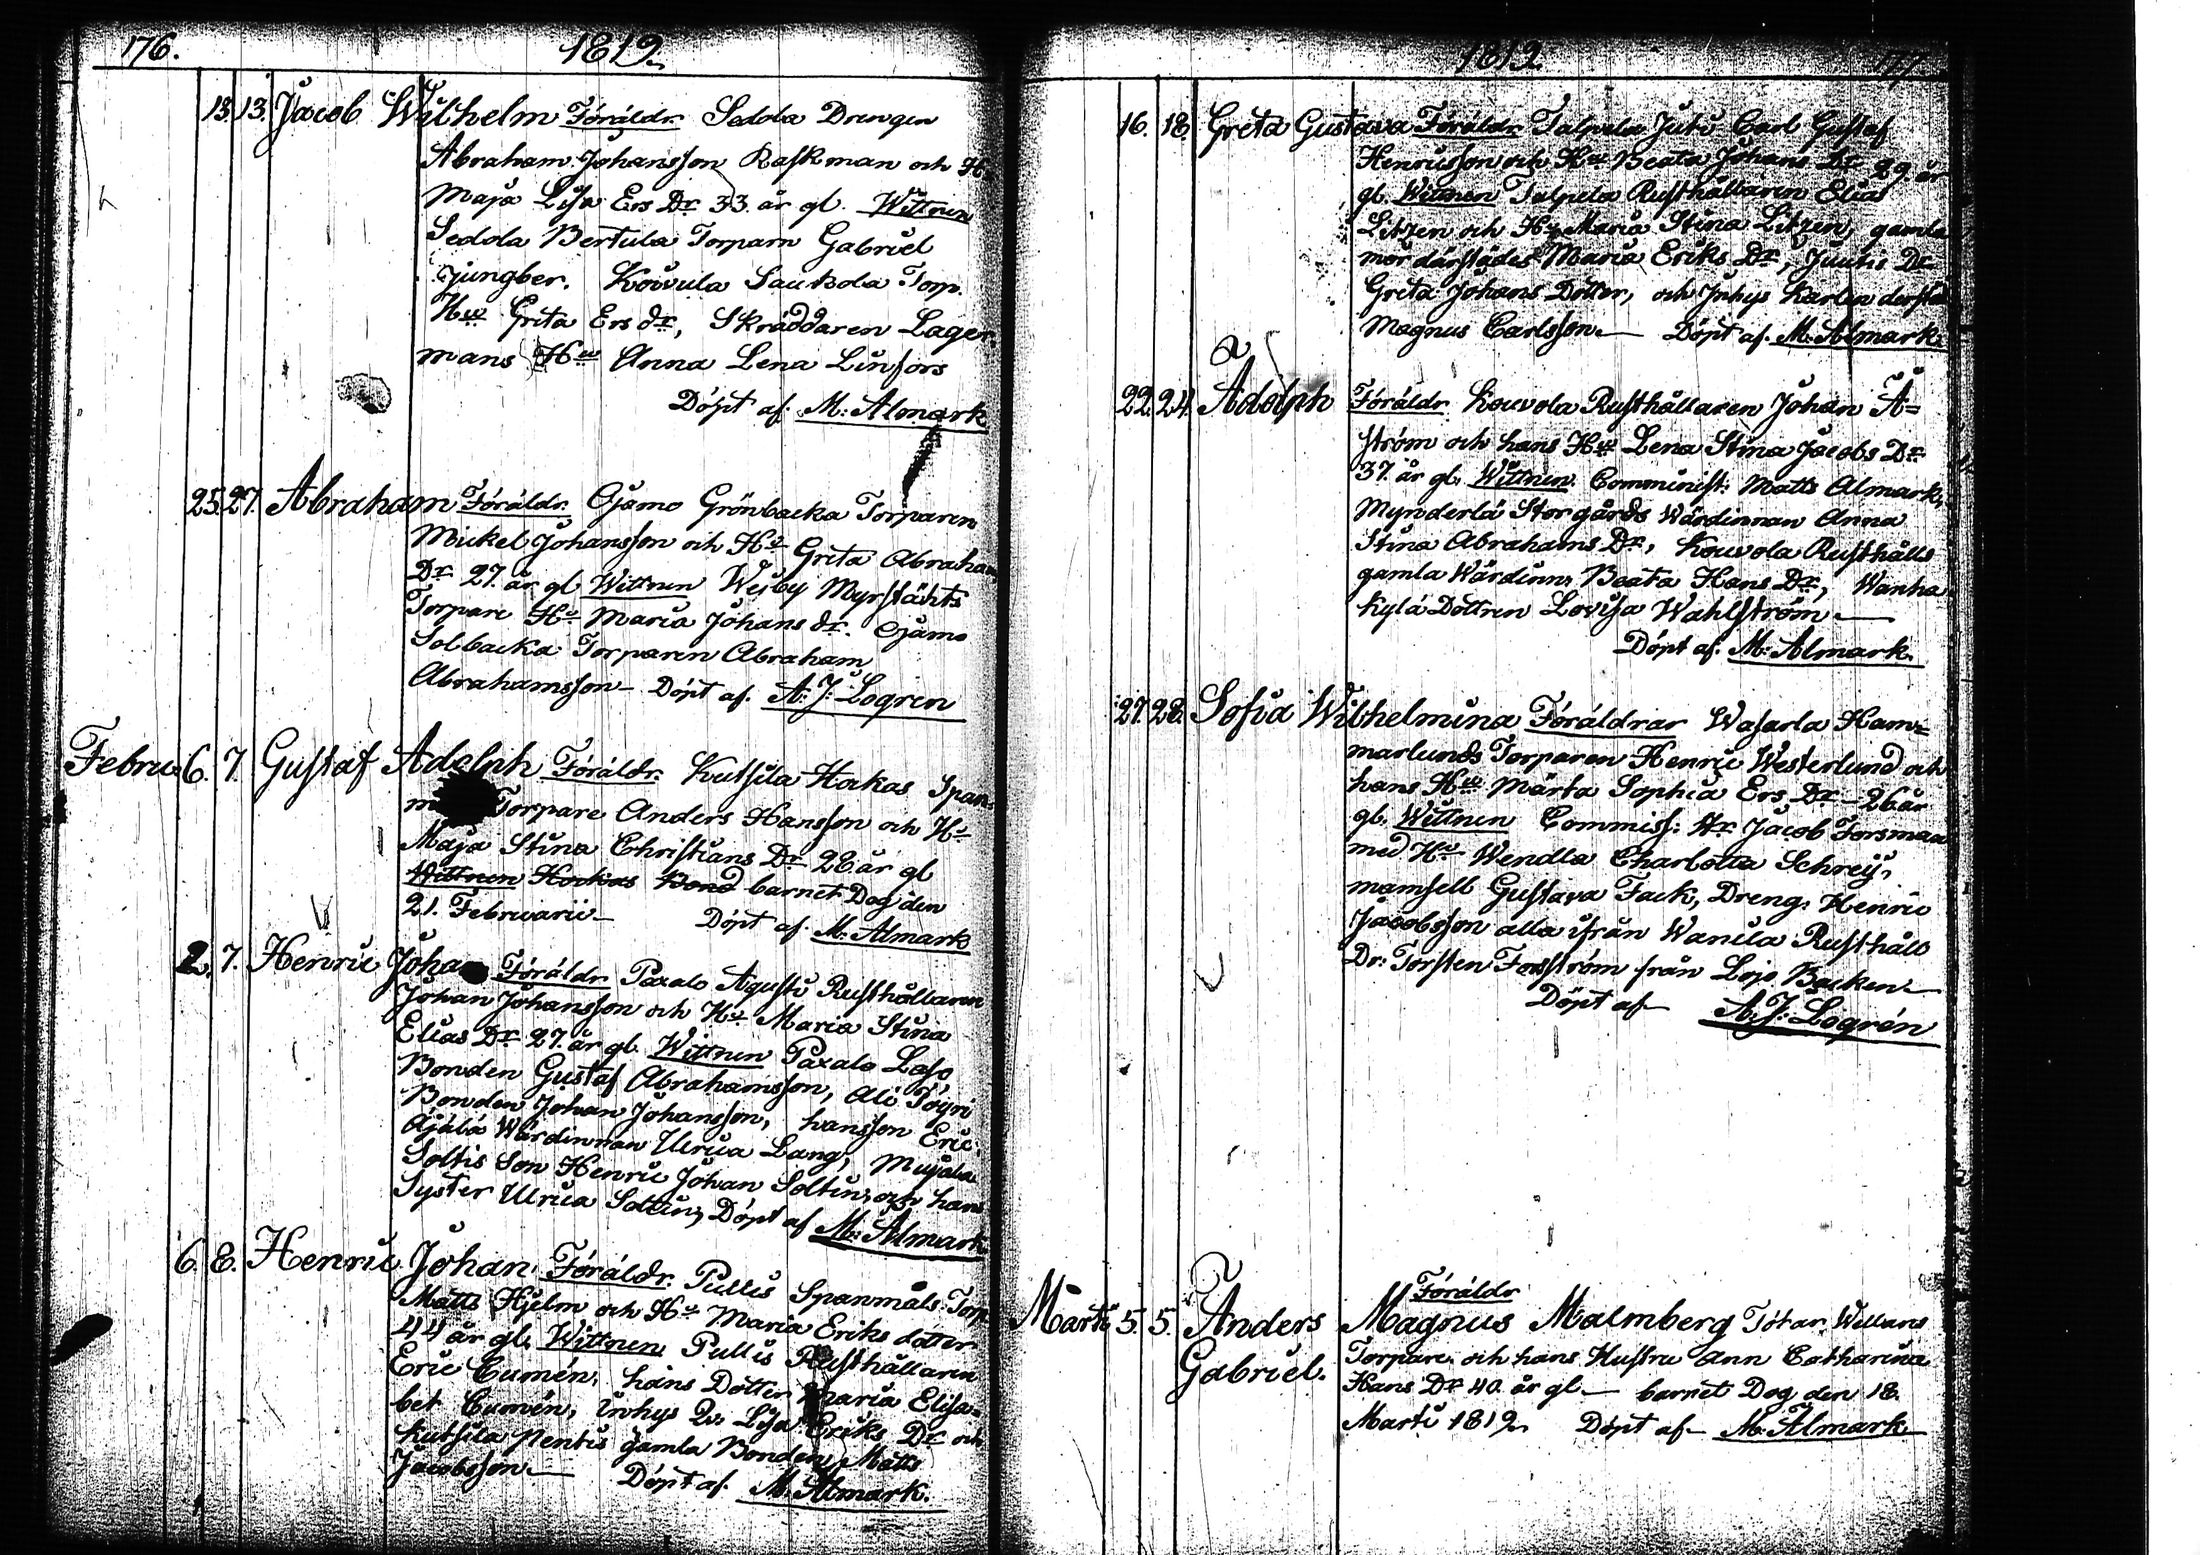 176. 1819.
13. 13. Jacob Wilhelm Föräldr. Sedola Drengen
Abraham Johansson Raskman och H.
Maja Lisa Ers Dr 33. år gl. Wittnen
Sedola Bertula Torparn Gabriel
Ljungber. Koivula Saukola Torp.
Hu Greta Ers dr, Skräddaren Lager
mans Hu Anna Lena Linfors
Döpt af. M: Almark
25. 27. Abraham Föräldr. Ojamo Grönbacka Torparen
Mickel Johansson och Hu Greta Abraham
Dr 27. år gl Wittnen Wesby Myrstähts
Torpare Hu Maria Johans dr. Ojamo
Solbacka Torparen Abraham
Abrahamsson – Döpt af. A: J: Logren
Febru 6. 7. Gustaf Adolph Föräldr. Kutsila Hokas Span
m Torpare Anders Hansson och Hu
Maja Stina Christians Dr 28 år gl
Wittnen Hockas Bond barnet Dog den
21. Februarii – Döpt af. M: Almark
2. 7. Henric Joha Föräldr Paxalo Agusti Rusthållaren
Johan Johansson och Hu Maria Stina
Elias Dr 27. år gl. Wittnen Paxalo Laso
Bonden Gustaf Abrahamsson, Ali Töyri
Bonden Johan Johansson, hansson Eric.
Äjälä Wärdinnan Ulrica Lang, Mujala
Soltis Son Henric Johan Soltin, och hans
Syster Ulrica Soltin, Döpt af M: Almark
6. 8. Henric Johan. Föräldr. Pullis Spanmåls. Torp
Matts Hjelm och Hu Maria Eriks dotter
44 år gl. Wittnen Pullis Rusthållaren
Eric Cumén, hans Dotter Maria Elisa=
bet Cumén, inhys Qv. Lisa Eriks Dr och
Kutsila Pentis gamla Bonden Matts
Jacobsson – Döpt af. M. Almark.
1819. 177
16. 18. Greta Gustava Föräldr. Talpela Juti Carl Gustaf
Henricsson och Hu Beata Johans Dr 29 år
gl. Wittnen Talpela Rusthållaren Elias
Litzen och Hu Maria Stina Litzen, gamla
mor därstädes Maria Eriks Dr, Juutis Dr
Greta Johans Dotter, och Inhys Karlen derstä
Magnus Carlsson. – Döpt af. M: Almark.
22. 24. Adolph Föräldr Kouvola Rusthållaren Johan Å=
ström och hans Hu Lena Stina Jacobs Dr
37. år gl. Wittnen. Comminist: Matts Almark,
Mynderlä Storgårds Wärdinnan Anna
Stina Abrahams Dr, Kouvola Rusthålls
gamla Wärdinn. Beata Hans Dr, Wanha
kylä Dottren Lovisa Wahlström –
Döpt af. M: Almark.
27. 28. Sofia Wilhelmina Föräldrar Wasarla Ham=
marlunds Torparen Henric Westerlund och
hans Hu Märta Sophia Ers Dr – 26 år
gl. Wittnen Commiss: Hr. Jacob Forsman
med Hu Wendla Charlotta Schrey,
mamsell Gustava Fack, Dreng. Henric
Jacobsson alla ifrån Wanila Rusthåll
Dr: Torsten Forsström från Lojo Backen –
Döpt af – A: J: Logrén
Martii 5. 5. Anders Gabriel.
Föräldr
Magnus Malmberg Tötar Willans
Torpare och hans Hustru Ann Catharina
Hans Dr 40. år gl – barnet Dog den 18.
Marti 1819. Döpt af – M: Almark